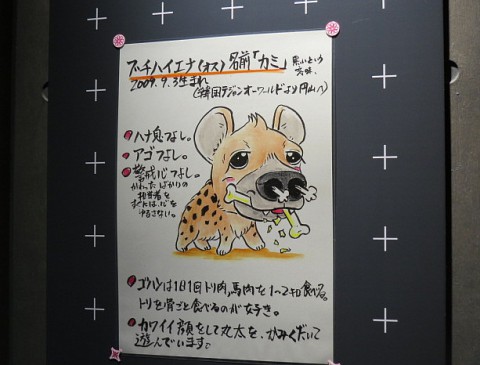 ブチハイエナ(オス) 名前「カミ」 黒いという意味。
2009.9.3生まれ
(韓国テジャンオーワールドより円山へ)
ハナ息つよし。
アゴつよし。
警戒心つよし。
かわったばかりの
担当者を
すぐには
ゆるさない。
ゴハンは1日1回トリ肉,馬肉を1~2キロ食べる。
トリを骨ごと食べるのが好き。
カワイイ顔をして丸太を、かみくだいて
遊んでいます。